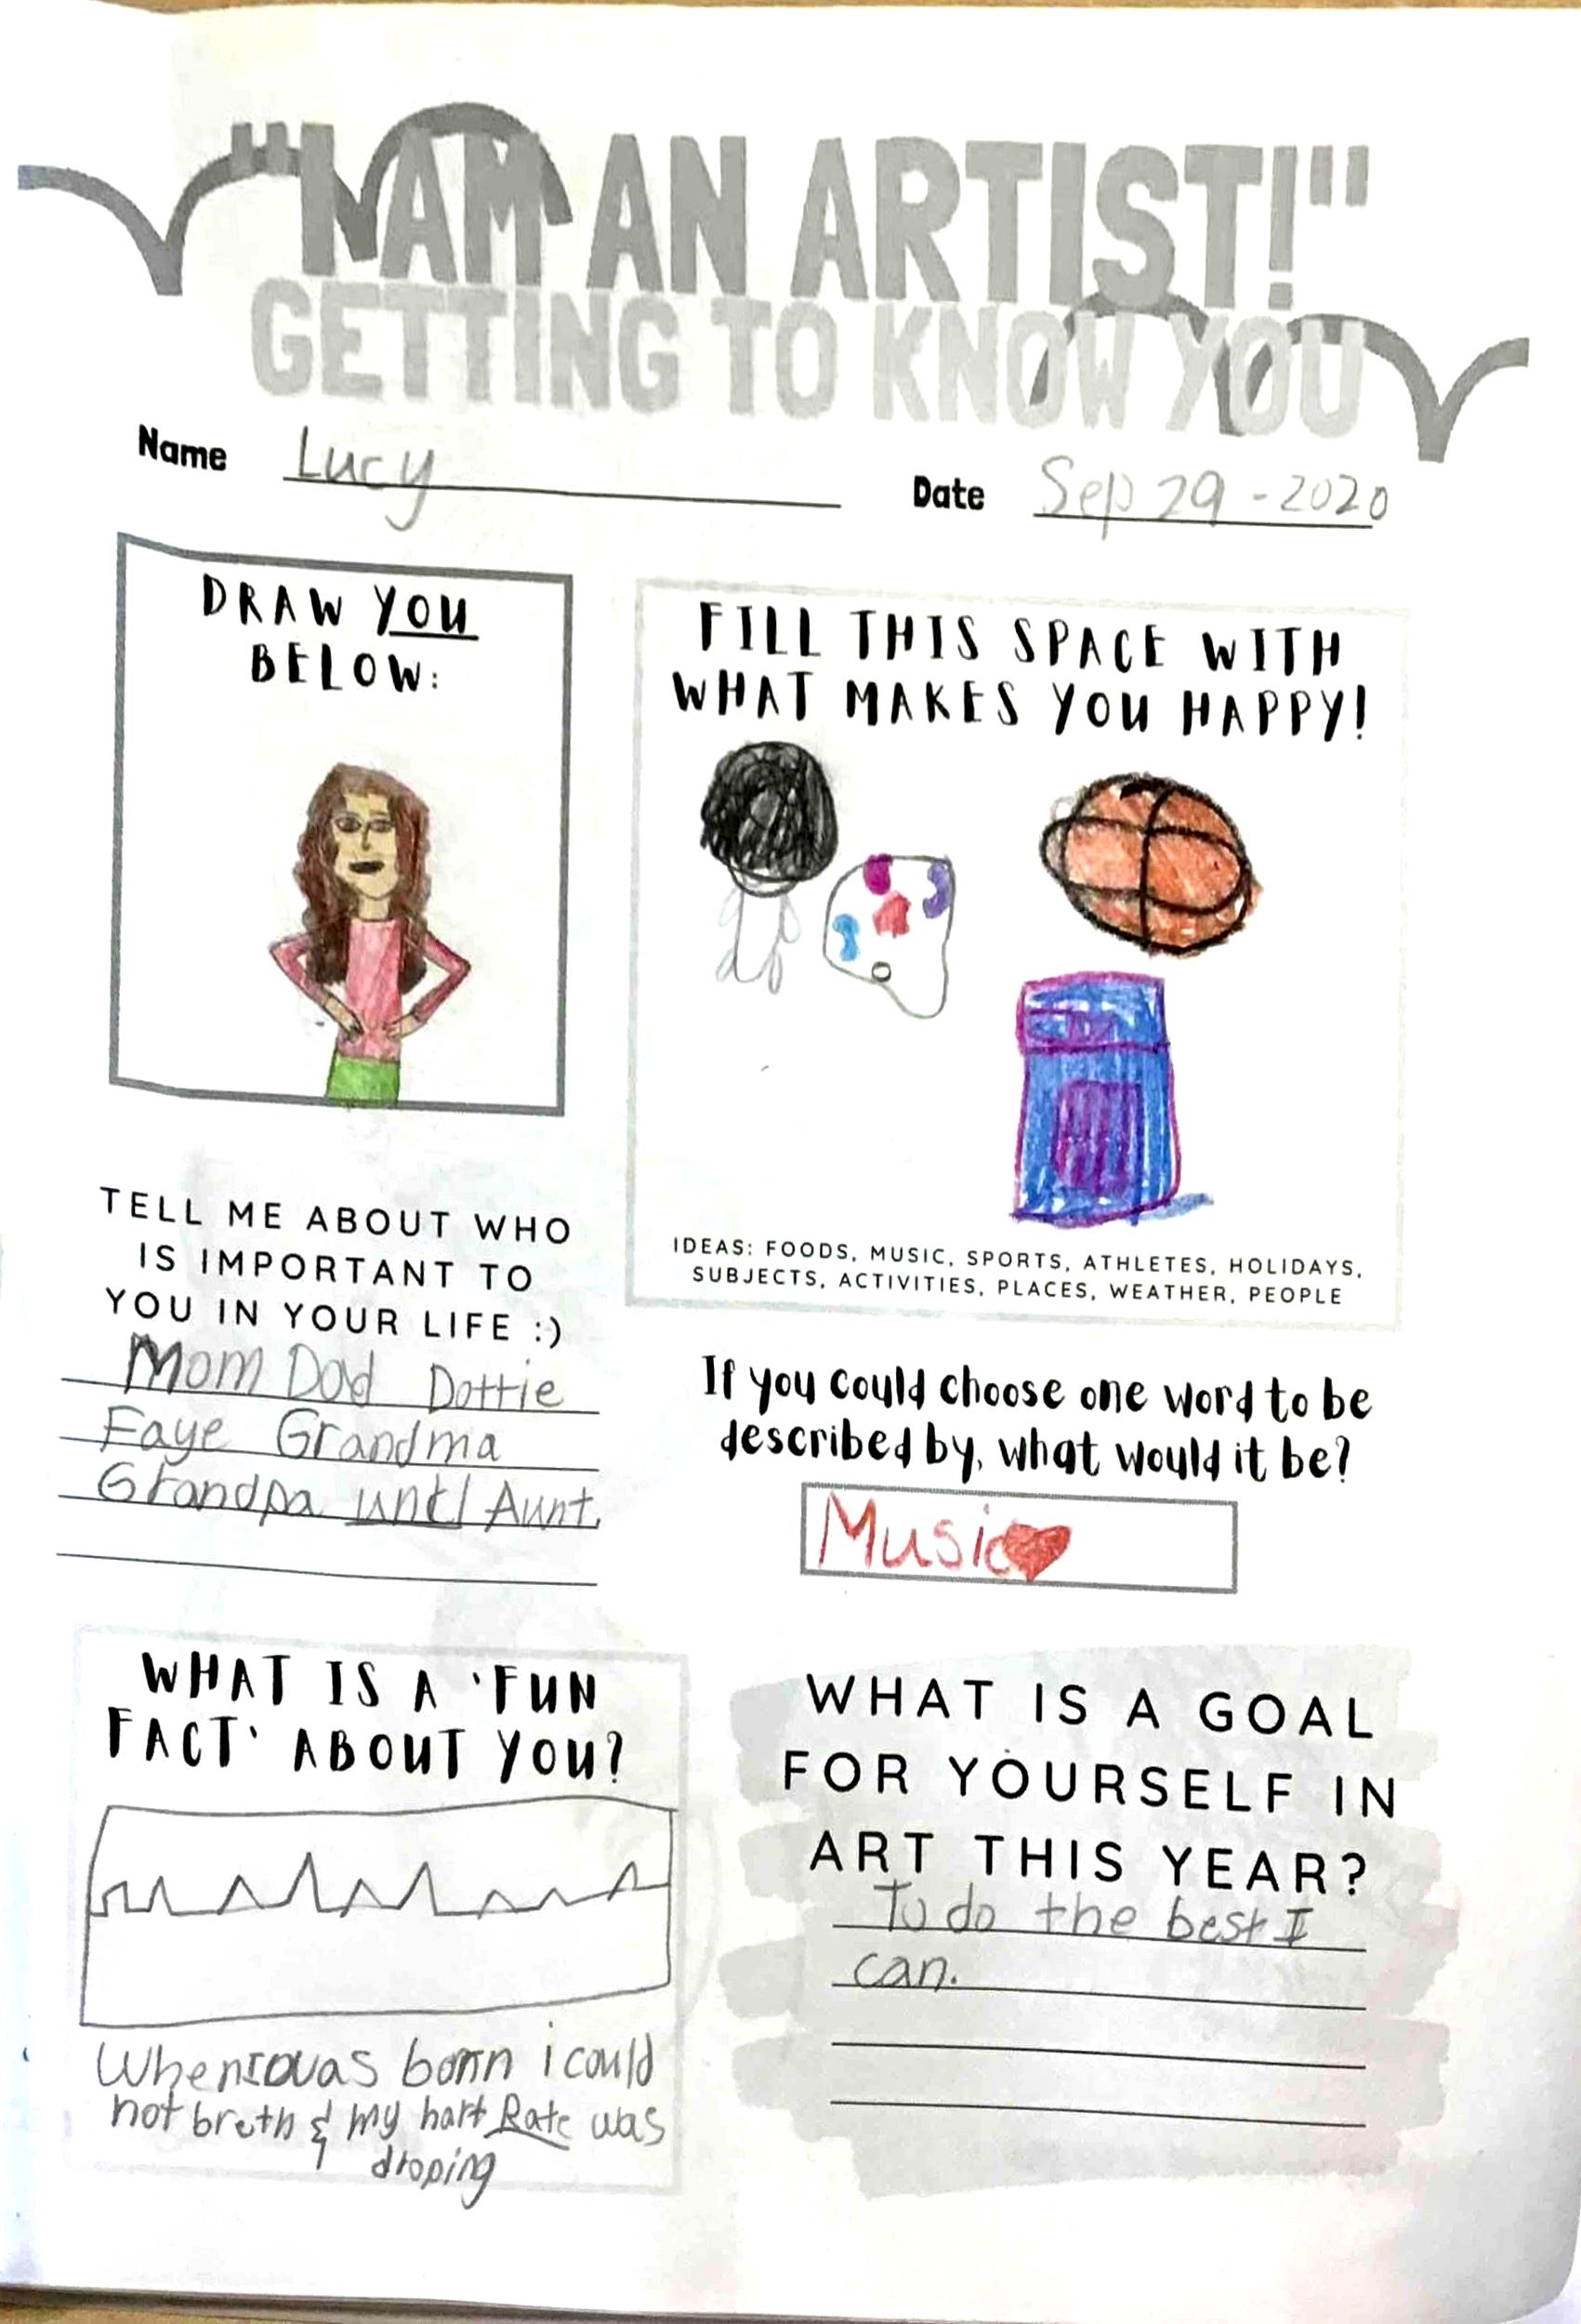 "I AM AN ARTIST!"
GETTING TO KNOW YOU
Name Lucy
Date Sep 29 - 2020
DRAW YOU
BELOW:
FILL THIS SPACE WITH
WHAT MAKES YOU HAPPY!
IDEAS: FOODS, MUSIC, SPORTS, ATHLETES, HOLIDAYS,
SUBJECTS, ACTIVITIES, PLACES, WEATHER, PEOPLE
TELL ME ABOUT WHO
IS IMPORTANT TO
YOU IN YOUR LIFE :)
Mom Dad Dottie
Faye Grandma
Grandpa uncl Aunt.
If you could choose one word to be
described by, what would it be?
Music
WHAT IS A 'FUN
FACT' ABOUT YOU?
When I was born i could
not breth & my hart Rate was
droping
WHAT IS A GOAL
FOR YOURSELF IN
ART THIS YEAR?
To do the best I
can.